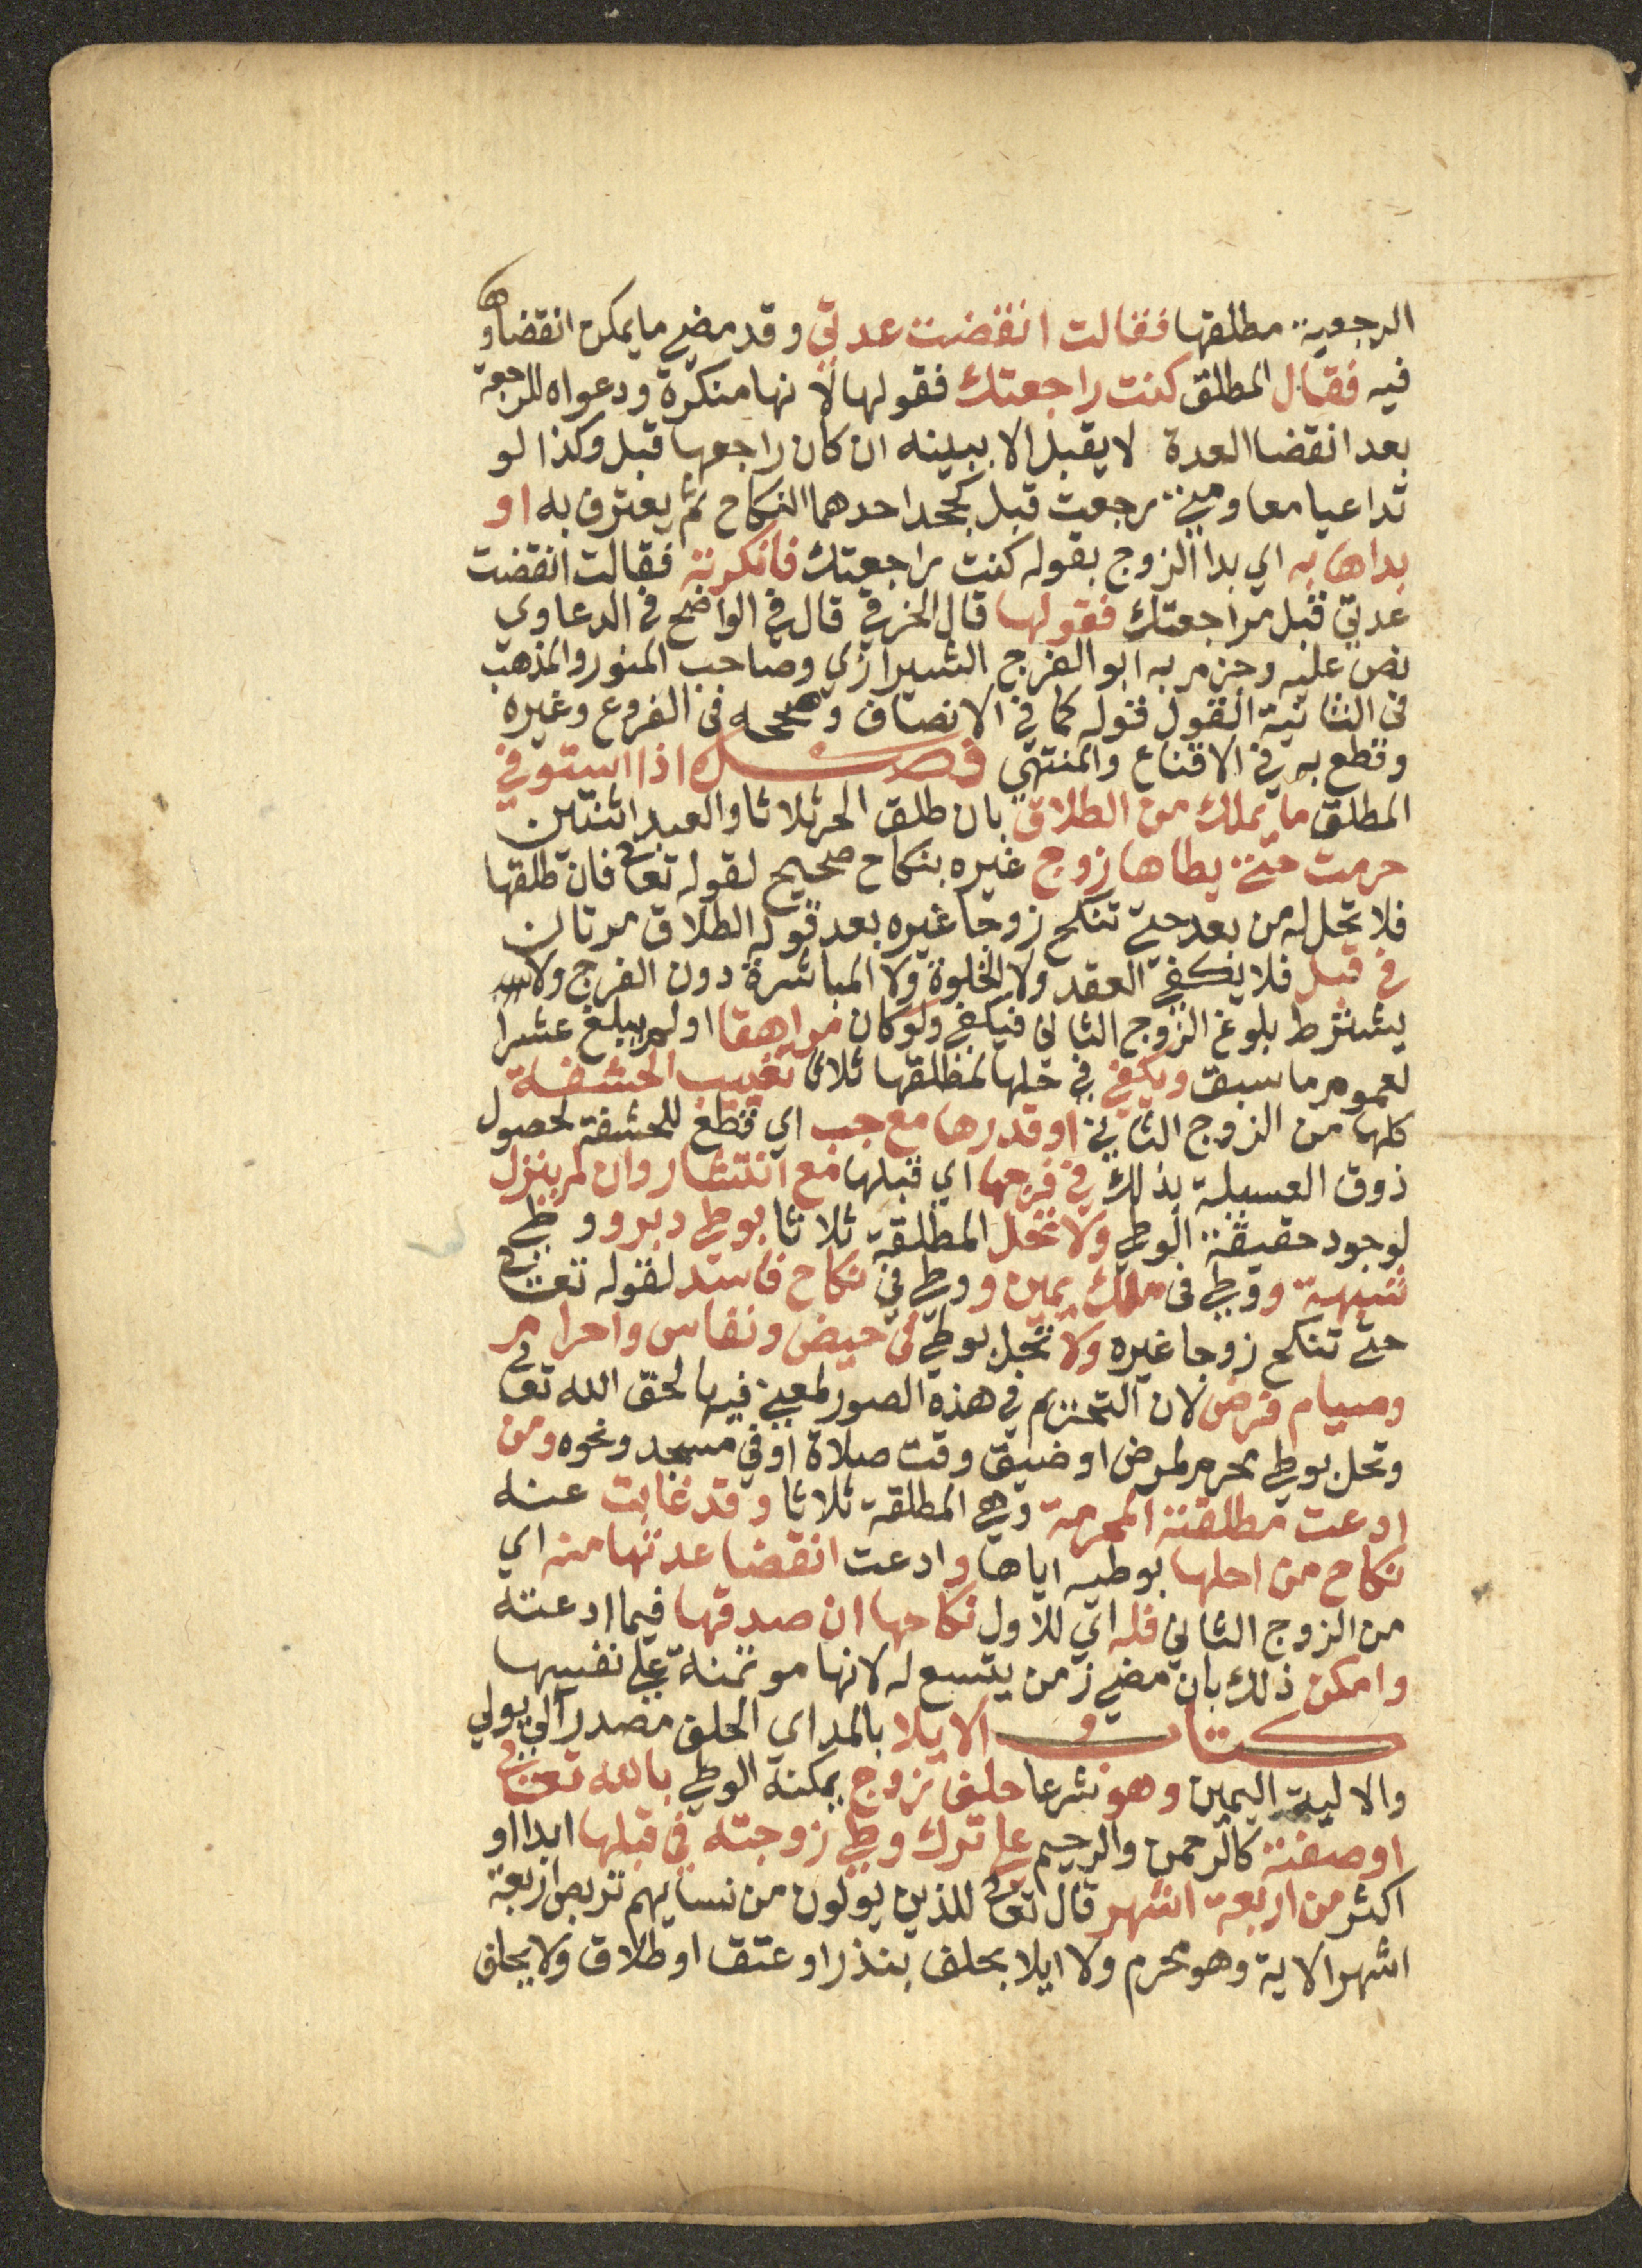 الرجعية مطلقها فقالت انقضت عدتي وقد مضي ما يمكن انقضاوها
فيه فقال المطلق كنت راجعتك فقولها لانها منكرة ودعواه للرجعة
بعد انقضا العدة لا يقبل الا ببينه ان كان راجعها قبل وكذا لو
تداعيا معا ومتي رجعت قبل كجحد احدهما النكاح ثم يعترف به او
بداها به اي بدا الزوج بقوله كنت راجعتك فانكرته فقالت انقضت
عدتي قبل مراجعتك فقولها قال الخرقي قال في الواضح في الدعاوي
نص عليه وجزم به ابو الفرج الشيرازي وصاحب المنور والمذهب
في الثانية القول قوله كما في الانصاف وصححه في الفروع وغيره
وقطع به في الاقناع والمنتهي فصل اذا استوفي
المطلق ما يملك من الطلاق بان طلق الحر ثلاثا والعبد اثنتين
حرمت حتي يطاها زوج غيره بنكاح صحيح لقوله تعالى فان طلقها
فلا تحل له من بعد حتي تنكح زوجا غيره بعد قوله الطلاق مرتان
في قبل فلا يكفي العقد ولا الخلوة ولا المباشرة دون الفرج ولا
يشترط بلوغ الزوج الثاني فيكفي ولو كان مراهقا او لم يبلغ عشرا
لعموم ما سبق ويكفي في حلها لمطلقها ثلاثا تغييب الحشفة
كلها من الزوج الثاني او قدرها مع جب اي قطع للحشفة لحصول
ذوق العسيلة بذلك في فرجها اي قبلها مع انتشار وان لم ينزل
لوجود حقيقة الوطي ولا تحل المطلقة ثلاثا بوطي دبر ووطي
شبهة ووطي في ملك يمين ووطي في نكاح فاسد لقوله تعالى
حتي تنكح زوجا غيره ولا تحل بوطي في حيض ونفاس واحرام
وصيام فرض لان التحريم في هذه الصور لمعني فيها لحق الله تعالى
وتحل بوطي محرم لمرض او ضيق وقت صلاة او في مسجد ونحوه ومن
ادعت مطلقته المحرمة وهي المطلقة ثلاثا وقد غابت عنه
نكاح من احلها بوطيه اياها وادعت انقضا عدتها منه اي
من الزوج الثاني فله اي للاول نكاحها ان صدقها فيما ادعته
وامكن ذلك بان مضي زمن يتسع له لانها موتمنة علي نفسها
كتاب الايلا بالمد اي الحلف مصدر آلي يولي
والالية اليمين وهو شرعا حلف زوج يمكنه الوطي بالله تعالى
او صفته كالرحمن والرحيم علي ترك وطي زوجته في قبلها ابدا او
اكثر من اربعة اشهر قال تعالى للذين يولون من نسايهم تربص اربعة
اشهر الاية وهو محرم ولا ايلا بحلف بنذر او عتق او طلاق ولا بحلف